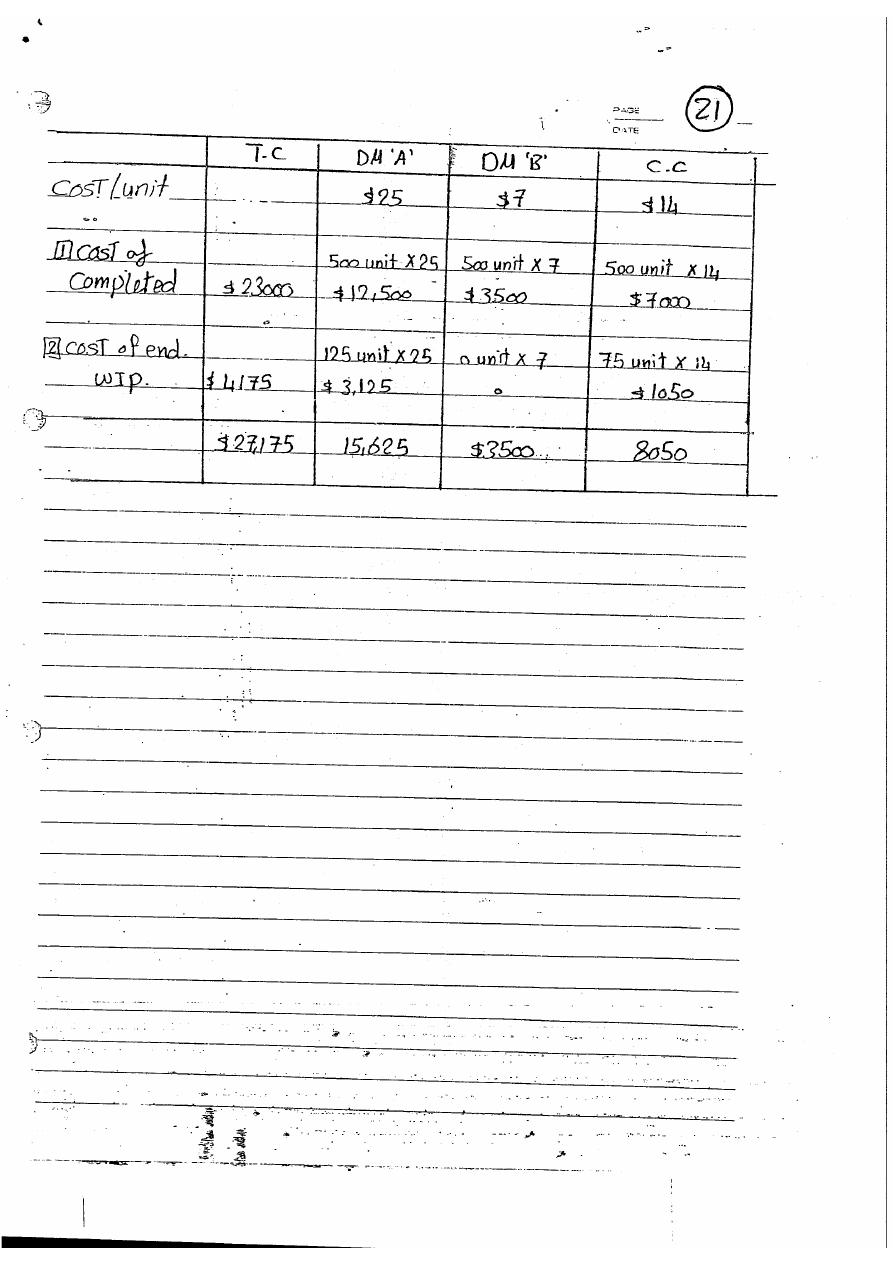 PAGE 21
DATE
T.C DM 'A' DM 'B' C.C
Cost/unit $25 $7 $14
1 Cost of 500 unit X 25 500 unit X 7 500 unit X 14
Completed $23000 $12,500 $3500 $7000
2 Cost of end. 125 unit X 25 0 unit X 7 75 unit X 14
WIP. $4175 $3,125 0 $1050
$27,175 15,625 $3500 8050